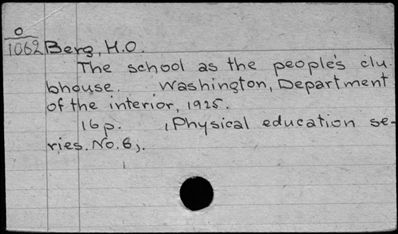 O
1062 Berg, H.O.
The school as the people's clu-
bhouse. Washington, Department
of the interior, 1925.
16p. (Physical education se-
ries. No. 6).